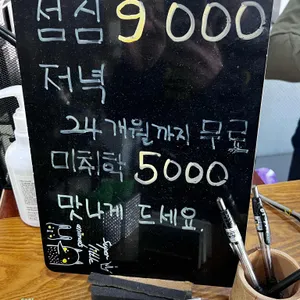 점심 9000
저녁
24개월까지 무료
미취학 5000
맛나게 드세요.